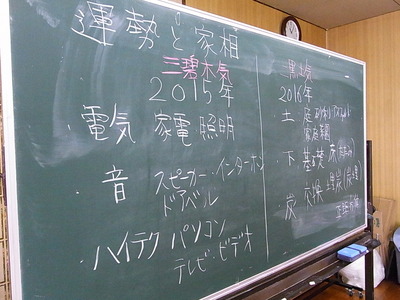 運勢と家相
三碧木気
2015年
・電気 家電 照明
・音 スピーカー・インターホン
ドアベル
・ハイテク パソコン
テレビ・ビデオ
黒土気
2016年
・土 庭
家庭菜園
・下 基礎 床
・炭 埋炭